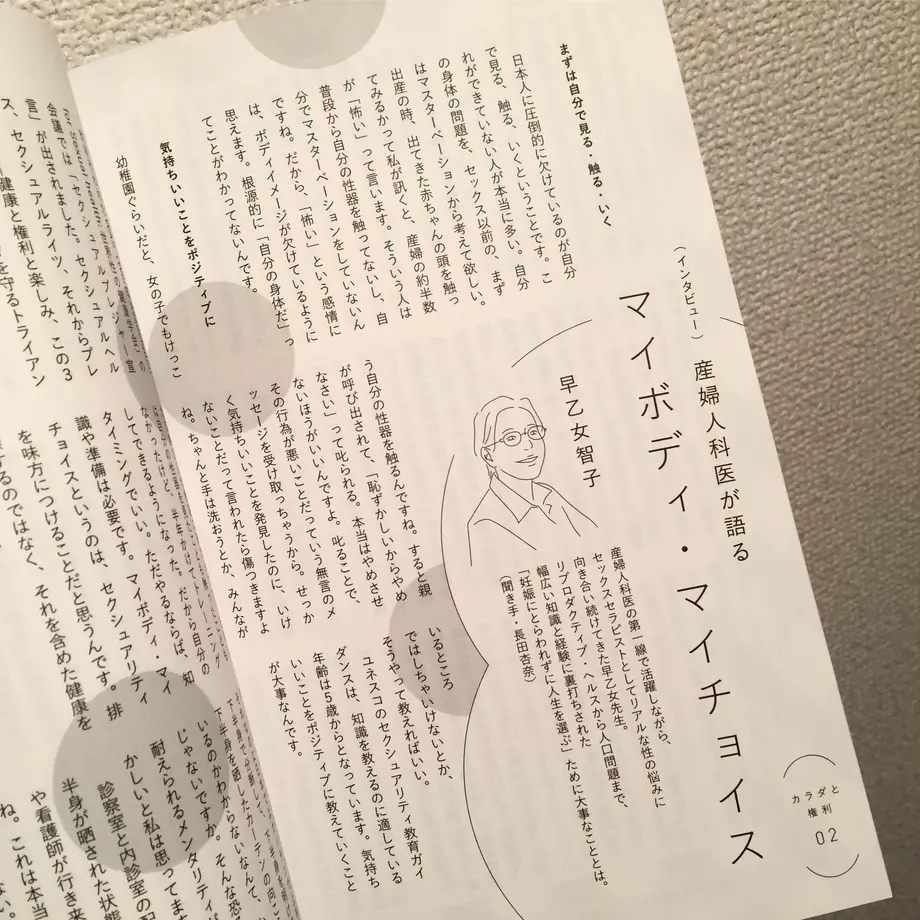 カラダと
権利
02
(インタビュー)
産婦人科医が語る
マイボディ・マイチョイス
早乙女智子
産婦人科医の第一線で活躍しながら、
セックスセラピストとしてリアルな性の悩みに
向き合い続けてきた早乙女先生。
リプロダクティブ・ヘルスから人口問題まで、
幅広い知識と経験に裏打ちされた
「妊娠にとらわれずに人生を選ぶ」ために大事なこととは。
(聞き手・長田杏奈)
まずは自分で見る・触る・いく
日本人に圧倒的に欠けているのが自分
で見る、触る、いくということです。こ
れができていない人が本当に多い。自分
の身体の問題を、セックス以前の、まず
はマスターベーションから考えて欲しい。
出産の時、出てきた赤ちゃんの頭を触っ
てみるかって私が訊くと、産婦の約半数
が「怖い」って言います。そういう人は
普段から自分の性器を触ってないし、自
分でマスターベーションをしていないん
ですね。だから、「怖い」という感情に
は、ボディイメージが欠けているように
思えます。根源的に「自分の身体だ」っ
てことがわかってないんです。
気持ちいいことをポジティブに
幼稚園ぐらいだと、女の子でもけっこ
う自分の性器を触るんですね。すると親
が呼び出されて、「恥ずかしいからやめ
なさい」って叱られる。本当はやめさせ
ないほうがいいんですよ。叱ることで、
その行為が悪いことだっていう無言のメ
ッセージを受け取っちゃうから。せっか
く気持ちいいことを発見したのに、いけ
ないことだって言われたら傷つきますよ
ね。ちゃんと手は洗おうとか、みんなが
いるところ
ではしちゃいけないとか、
そうやって教えればいい。
ユネスコのセクシュアリティ教育ガイ
ダンスは、知識を教えるのに適している
年齢は5歳からとなっています。気持ち
いいことをポジティブに教えていくこと
が大事なんです。
会議では「セクシュアルプレジャー宣
言」が出されました。セクシュアルヘル
ス、セクシュアルライツ、それからプレ
健康と権利と楽しみ、この3
を守るトライアン
なかったけど、半年かけてトレーニング
してできるようになった。だから自分の
タイミングでいい。ただやるならば、知
識や準備は必要です。マイボディ・マイ
チョイスというのは、セクシュアリティ
を味方につけることだと思うんです。排
するのではなく、それを含めた健康を
下半身を晒したカーテンの向こ
いるのかわからないなんて、
じゃないですか。そんな恐
耐えられるメンタリティが
かしいと私は思ってます
診察室と内診室の
半身が晒された状態
や看護師が行き来
ね。これは本当